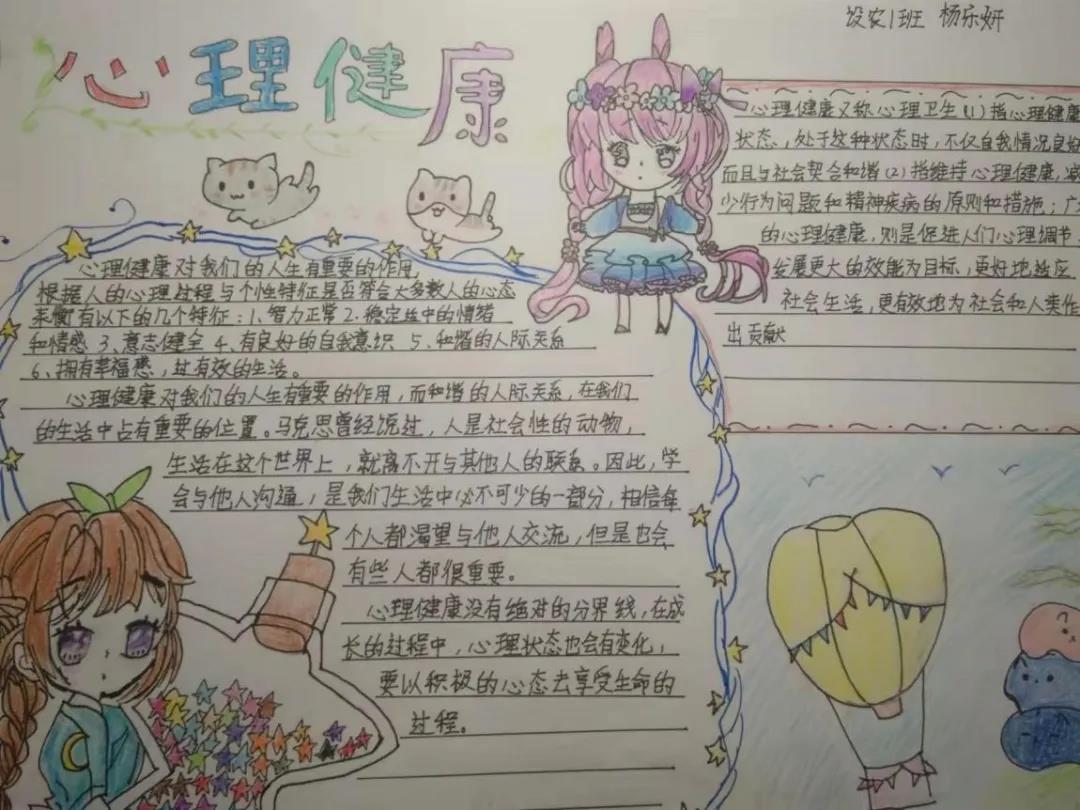 设农1班 杨乐妍
心理健康
心理健康对我们的人生有重要的作用
根据人的心理过程与个性特征是否符合大多数人的心态
来衡有以下的几个特征：1、智力正常 2、稳定适中的情绪
和情感 3、意志健全 4、有良好的自我意识 5、和谐的人际关系
6、拥有幸福感，过有效的生活。
心理健康对我们的人生有重要的作用，而和谐的人际关系，在我们
的生活中占有重要的位置。马克思曾经说过，人是社会性的动物，
生活在这个世界上，就离不开与其他人的联系。因此，学
会与他人沟通，是我们生活中必不可少的一部分，相信每
个人都渴望与他人交流，但是也会
有些人都很重要。
心理健康没有绝对的分界线，在成
长的过程中，心理状态也会有变化，
要以积极的心态去享受生命的
过程。
心理健康又称心理卫生(1)指心理健康
状态，处于这种状态时，不仅自我情况良好
而且与社会契合和谐(2)指维持心理健康，减
少行为问题和精神疾病的原则和措施；广
的心理健康，则是促进人们心理调节
发展更大的效能为目标，更好地适应
社会生活，更有效地为社会和人类作
出贡献